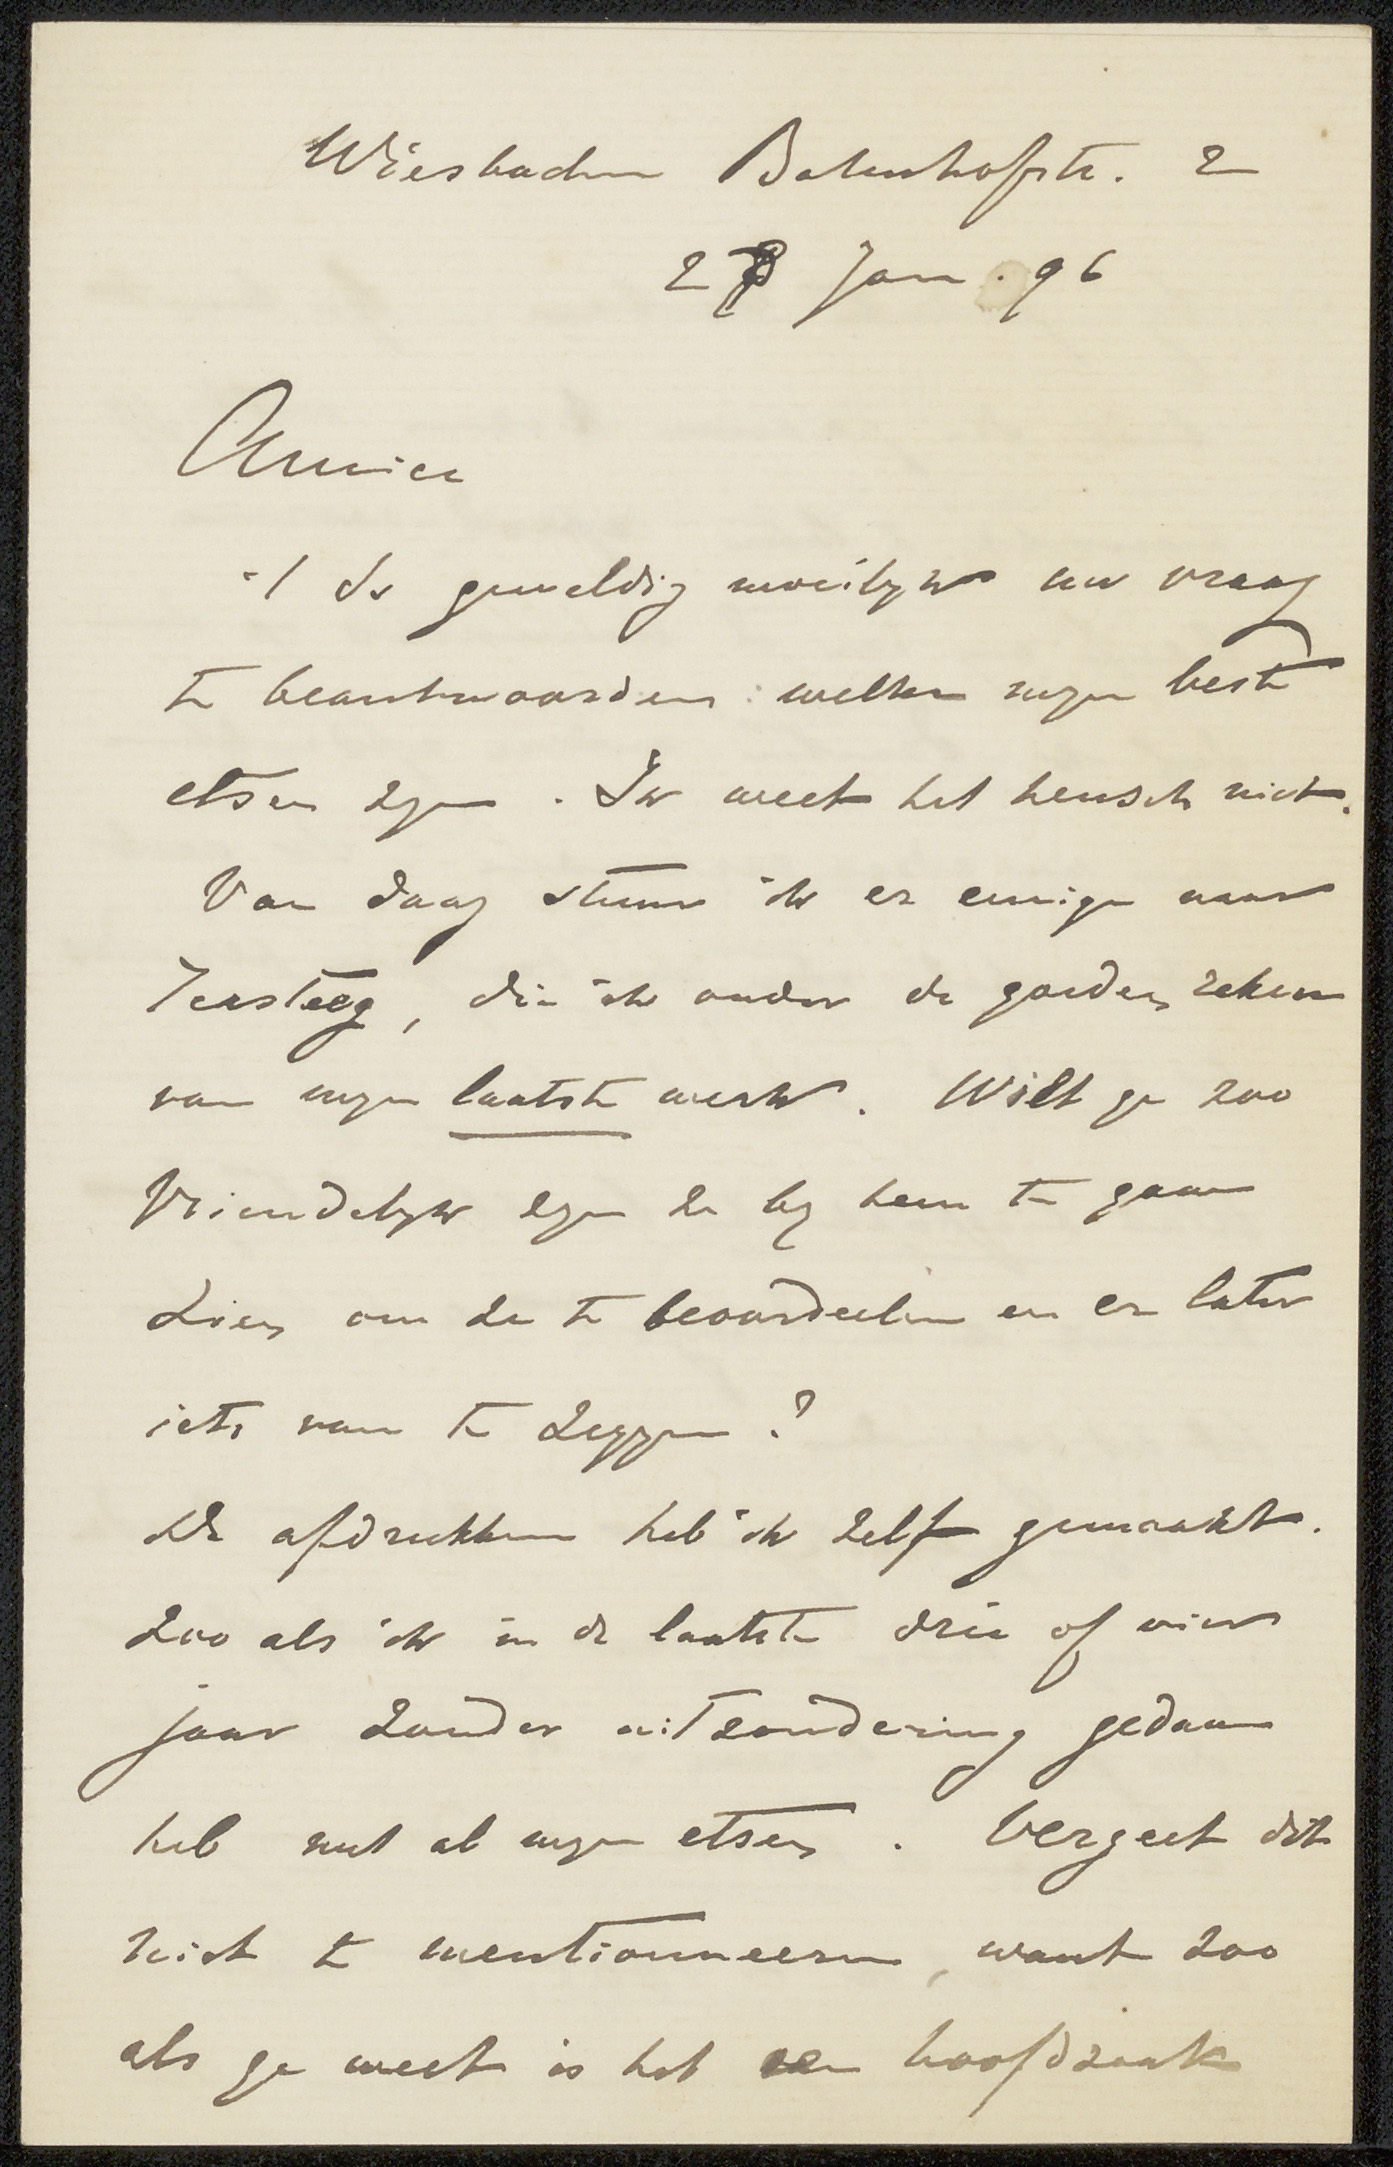 Wiesbaden Bahnhofstr. 2
28 Jan. 96
Amice
't Is geweldig moeilyk uw vraag
te beantwoorden: welken myn beste
etsen zyn. Ik weet het heusch niet.
Van daag stuur ik er eenige naar
Tersteeg, die ik onder de goeden reken
van myn laatste werk. Wilt ge zoo
vriendelyk zyn ze by hem te gaan
zien om ze te beoordeelen en er later
iets van te zeggen?
De afdrukken heb ik zelf gemaakt.
Zoo als ik in de laatste drie of vier
jaar zonder uitzondering gedaan
heb met al myn etsen. Vergeet dit
niet te mentionneeren, want zoo
als ge weet is het een hoofdzaak